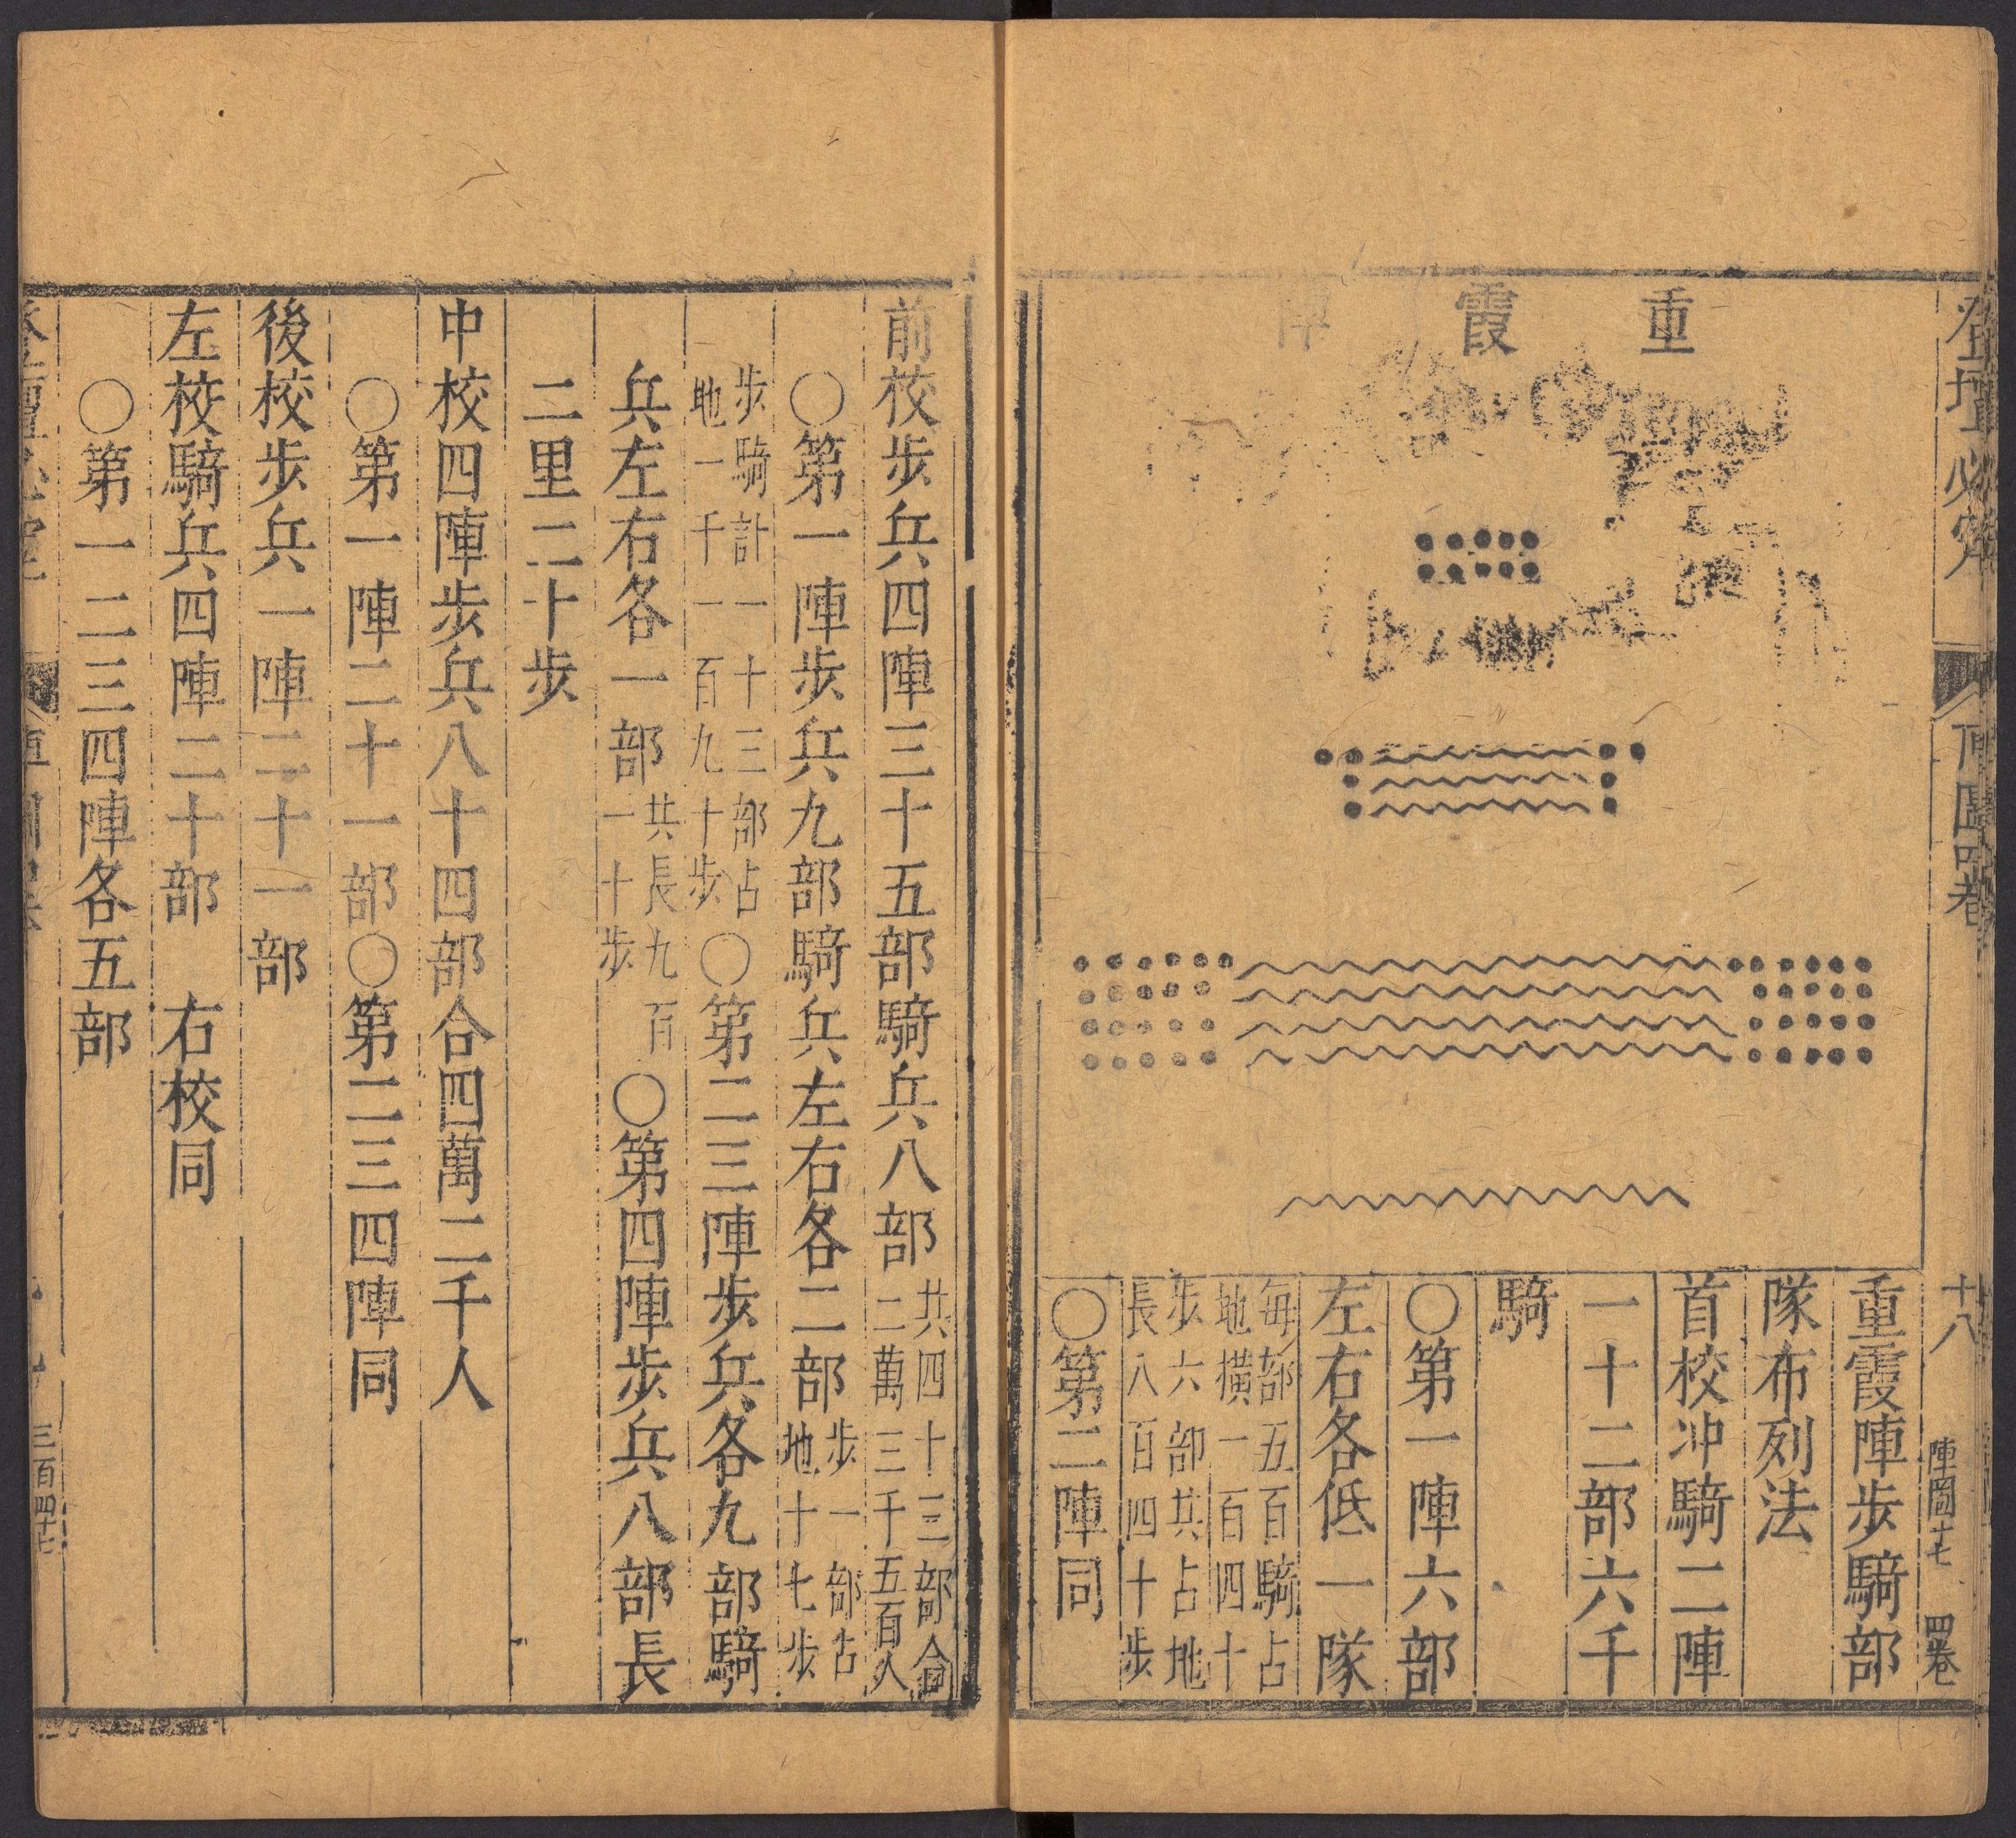 登壇必究
陣圖四卷
十八
陣圖十七
四卷
重霞陣
重霞陣步騎部
隊布列法
首校冲騎二陣
一十二部六千
騎
○第一陣六部
左右各低一隊
每部五百騎占
地橫一百四十
步六部共占地
長八百四十步
○第二陣同
前校步兵四陣三十五部騎兵八部
共四十三部合
二萬三千五百人
○第一陣步兵九部騎兵左右各二部
步一部占
地十七步
步騎計一十三部占
地一千一百九十步
○第二三陣步兵各九部騎
兵左右各一部
共長九百
一十步
○第四陣步兵八部長
二里二十步
中校四陣步兵八十四部合四萬二千人
○第一陣二十一部○第二三四陣同
後校步兵一陣二十一部
左校騎兵四陣二十部 右校同
○第一二三四陣各五部
三百四十七